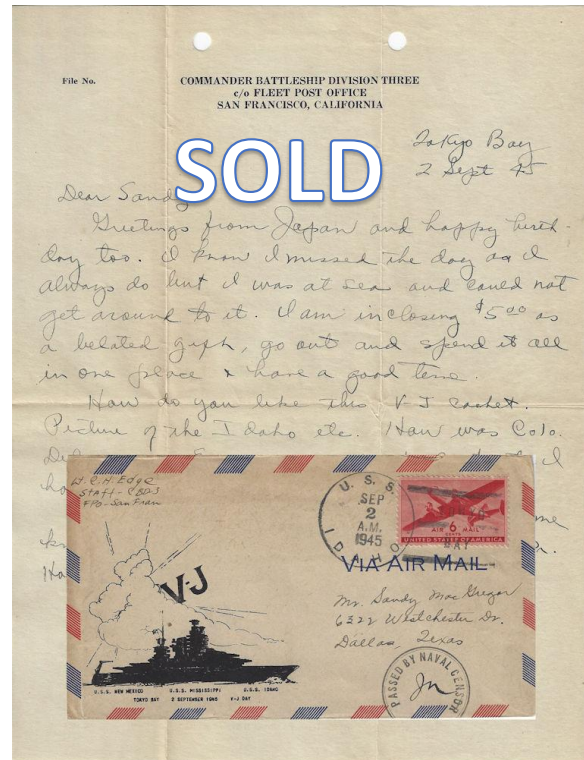 File No.
COMMANDER BATTLESHIP DIVISION THREE
c/o FLEET POST OFFICE
SAN FRANCISCO, CALIFORNIA
Tokyo Bay
2 Sept 45
SOLD
Dear Sandy
Greetings from Japan and happy birth-
day too. I know I missed the day as I
always do but I was at sea and could not
get around to it. I am inclosing $5.00 as
a belated gift, go out and spend it all
in one place & have a good time.
How do you like this V-J cachet.
Picture of the Idaho etc. How was Colo.
W. C. H. Edge
Staff-CBD-3
FPO-San Fran
U.S.S. IDAHO
SEP
2
A.M.
1945
BAY
AIR 6 MAIL
CENTS
UNITED STATES OF AMERICA
VIA AIR MAIL
V-J
Mr. Sandy MacGregor
6322 Westchester Dr.
Dallas, Texas
PASSED BY NAVAL CENSOR
U.S.S. NEW MEXICO U.S.S. MISSISSIPPI U.S.S. IDAHO
TOKYO BAY 2 SEPTEMBER 1945 V-J DAY